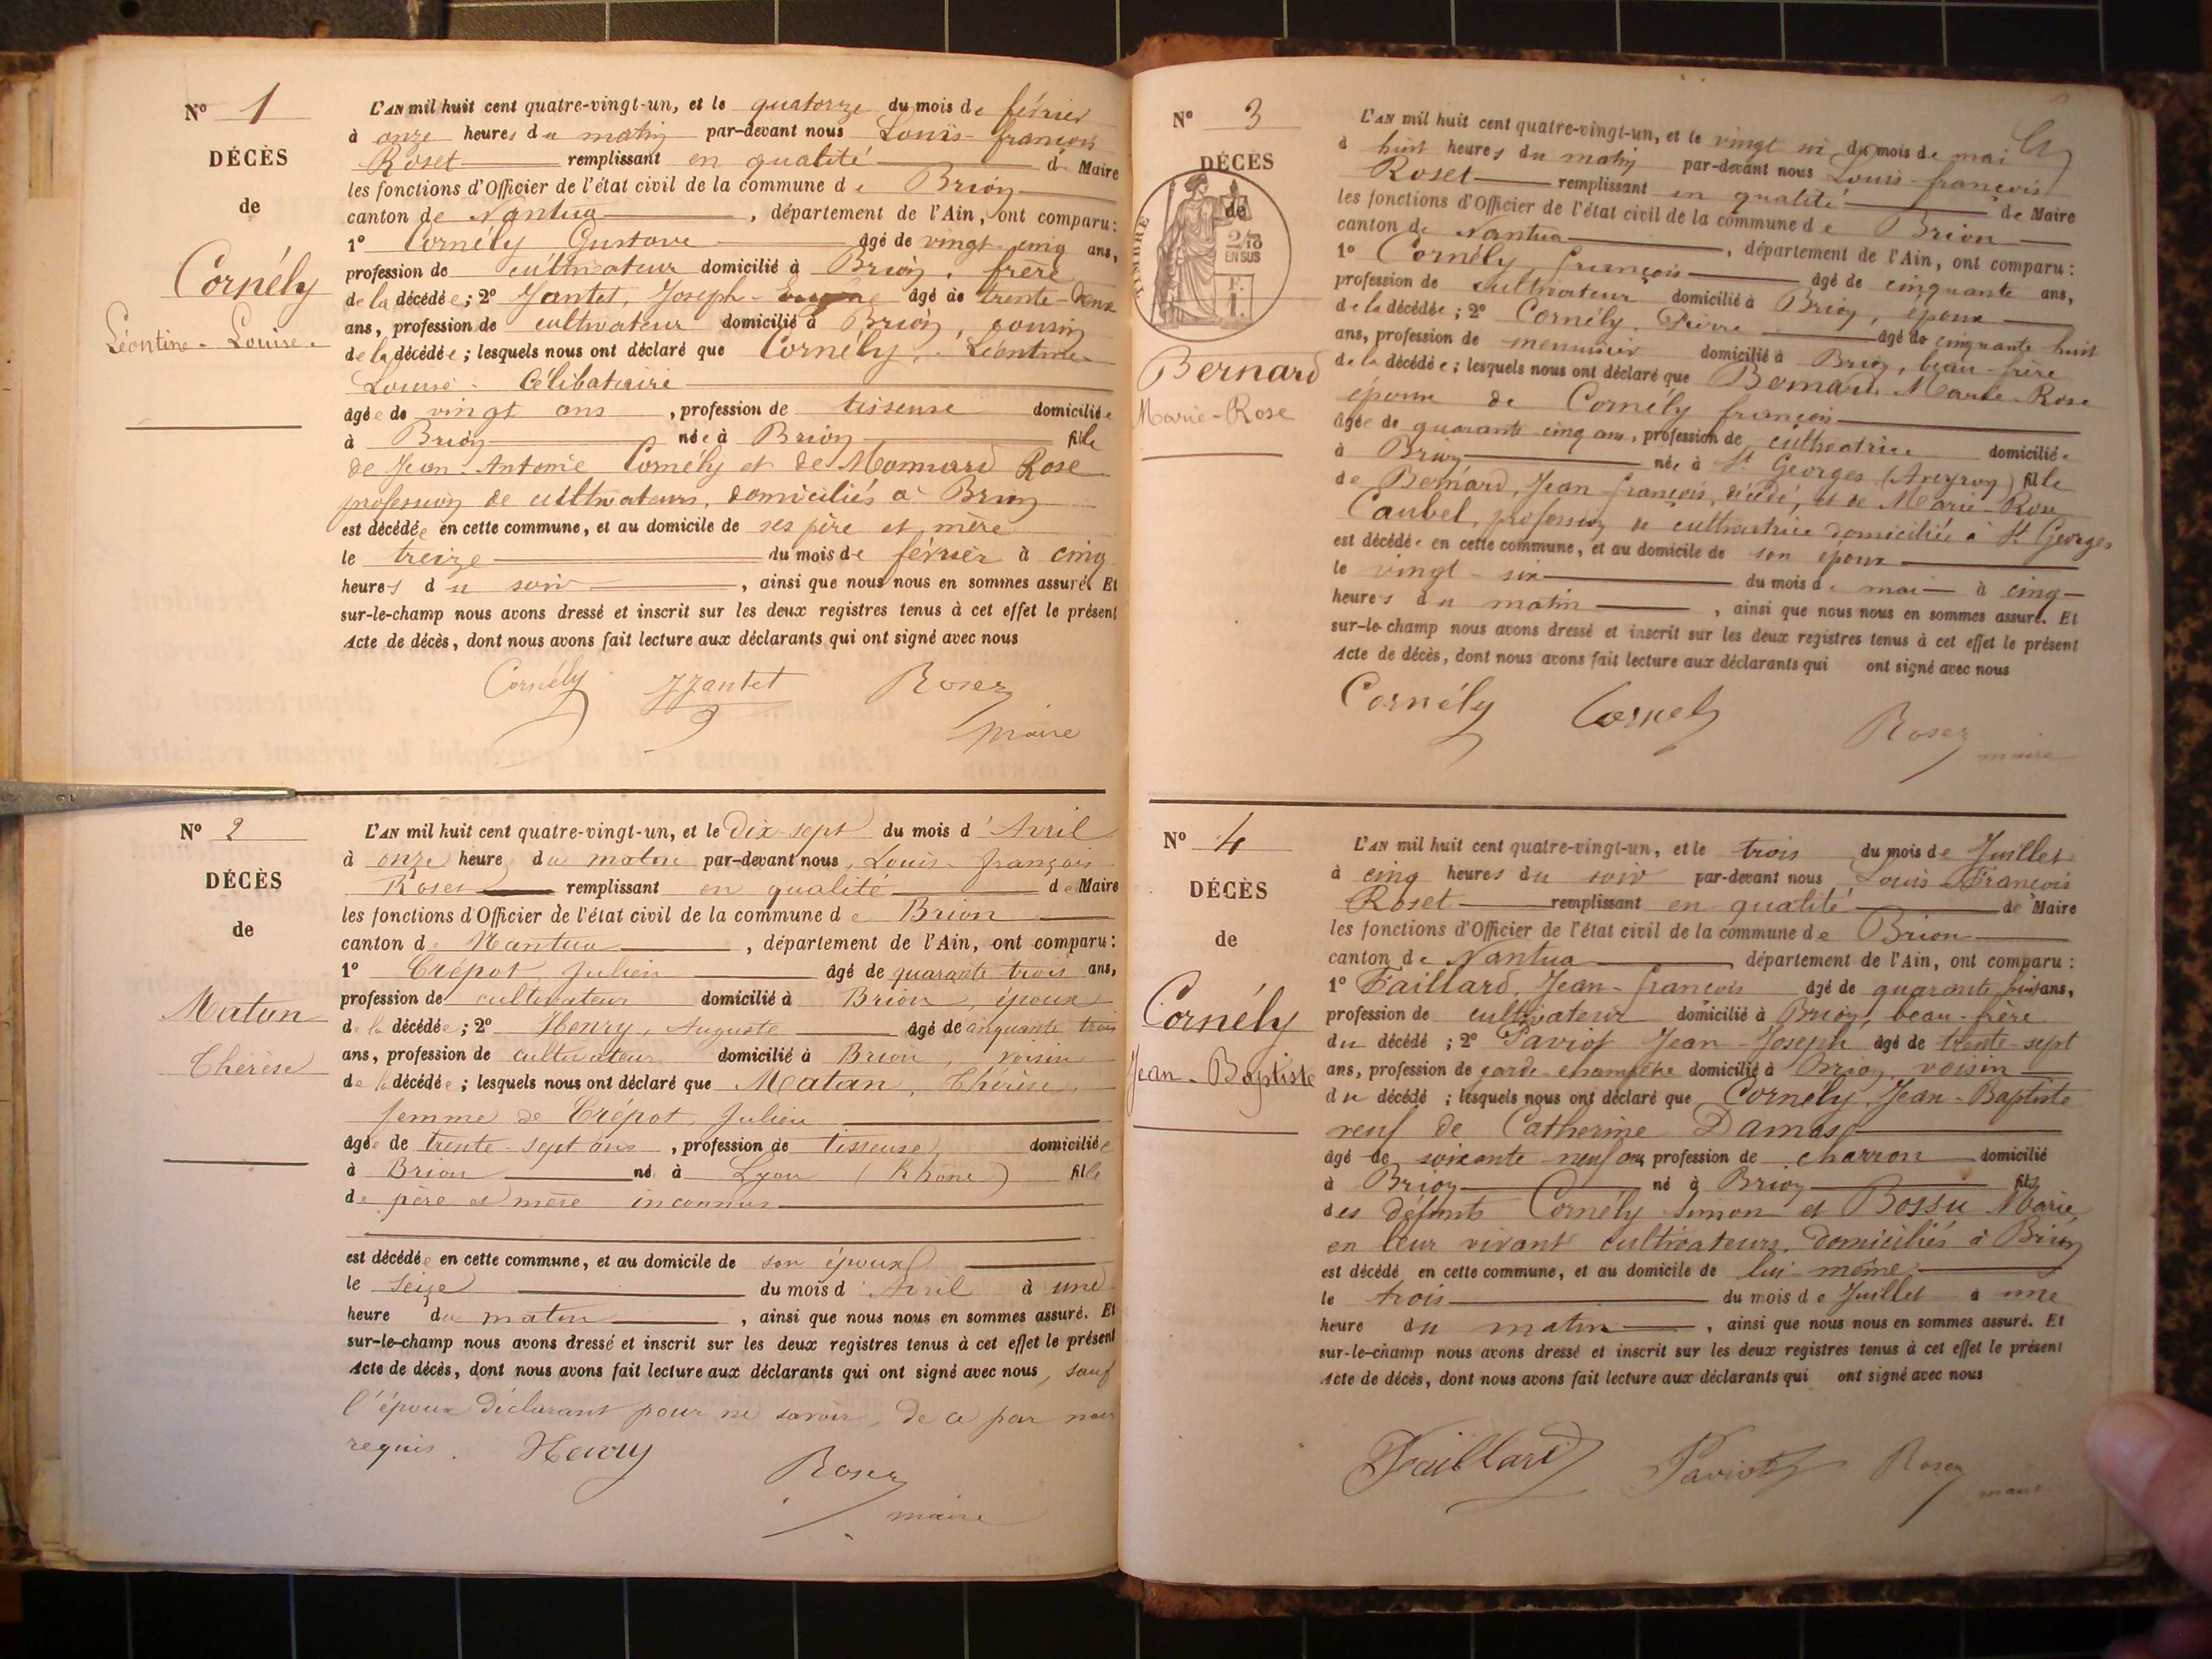 N° 1
DÉCÈS
de
Cornély
Léontine-Louise.
L'AN mil huit cent quatre-vingt-un, et le quatorze du mois de février
à onze heures du matin par-devant nous Louis-françois
Roset remplissant en qualité de Maire
les fonctions d'Officier de l'état civil de la commune de Brion
canton de Nantua, département de l'Ain, ont comparu:
1° Cornély Gustave âgé de vingt-cinq ans,
profession de cultivateur domicilié à Brion, frère
de la décédée; 2° Jantet, Joseph- âgé de trente-deux
ans, profession de cultivateur domicilié à Brion, cousin
de la décédée; lesquels nous ont déclaré que Cornély, Léontine
Louise - Célibataire
âgée de vingt ans, profession de tisseuse domiciliée
à Brion née à Brion fille
de Jean-Antoine Cornély et de Monnard Rose
profession de cultivateurs, domiciliés à Brion
est décédée en cette commune, et au domicile de ses père et mère
le treize du mois de février à cinq
heures du soir, ainsi que nous nous en sommes assuré. Et
sur-le-champ nous avons dressé et inscrit sur les deux registres tenus à cet effet le présent
Acte de décès, dont nous avons fait lecture aux déclarants qui ont signé avec nous
Cornély JJantet Roset
maire
N° 2
DÉCÈS
de
Matan
Thérèse
L'AN mil huit cent quatre-vingt-un, et le Dix-sept du mois d'Avril
à onze heures du matin par-devant nous, Louis-françois
Roset remplissant en qualité de Maire
les fonctions d'Officier de l'état civil de la commune de Brion
canton de Nantua, département de l'Ain, ont comparu:
1° Crépot Julien âgé de quarante trois ans,
profession de cultivateur domicilié à Brion, époux
de la décédée; 2° Henry, Auguste âgé de cinquante trois
ans, profession de cultivateur domicilié à Brion, voisin
de la décédée; lesquels nous ont déclaré que Matan, Thérèse,
femme de Crépot, Julien
âgée de trente-sept ans, profession de tisseuse domiciliée
à Brion né à Lyon (Rhône) fille
de père et mère inconnus
est décédée en cette commune, et au domicile de son époux
le Seize du mois d'Avril à une
heure du matin, ainsi que nous nous en sommes assuré. Et
sur-le-champ nous avons dressé et inscrit sur les deux registres tenus à cet effet le présent
Acte de décès, dont nous avons fait lecture aux déclarants qui ont signé avec nous, sauf
l'époux déclarant pour ne savoir, de ce par nous
requis. Henry
Roset
maire
N° 3
DÉCÈS
de
TIMBRE
2/10
EN SUS
Bernard
Marie-Rose
L'AN mil huit cent quatre-vingt-un, et le vingt six du mois de mai
à huit heures du matin par-devant nous Louis-françois
Roset remplissant en qualité de Maire
les fonctions d'Officier de l'état civil de la commune de Brion
canton de Nantua, département de l'Ain, ont comparu:
1° Cornély françois âgé de cinquante ans,
profession de cultivateur domicilié à Brion, époux
de la décédée; 2° Cornély, Pierre âgé de cinquante-huit
ans, profession de menuisier domicilié à Brion, beau-frère
de la décédée; lesquels nous ont déclaré que Bernard Marie-Rose
épouse de Cornély françois
âgée de quarante cinq ans, profession de cultivatrice domiciliée
à Brion née à St Georges (Aveyron) fille
de Bernard, Jean-françois, décédé, et de Marie-Rose
Caubel, profession de cultivatrice domiciliée à St Georges
est décédée en cette commune, et au domicile de son époux
le vingt-six du mois de mai à cinq
heures du matin, ainsi que nous nous en sommes assuré. Et
sur-le-champ nous avons dressé et inscrit sur les deux registres tenus à cet effet le présent
Acte de décès, dont nous avons fait lecture aux déclarants qui ont signé avec nous
Cornély Cornely
Roset maire
N° 4
DÉCÈS
de
Cornély
Jean-Baptiste
L'AN mil huit cent quatre-vingt-un, et le trois du mois de Juillet
à cinq heures du soir par-devant nous Louis-François
Roset remplissant en qualité de Maire
les fonctions d'Officier de l'état civil de la commune de Brion
canton de Nantua département de l'Ain, ont comparu:
1° Faillard, Jean-françois âgé de quarante ans,
profession de cultivateur domicilié à Brion, beau-frère
du décédé; 2° Paviot Jean-Joseph âgé de trente-sept
ans, profession de garde-champêtre domicilié à Brion, voisin
du décédé; lesquels nous ont déclaré que Cornély, Jean-Baptiste
veuf de Catherine Damas
âgé de soixante-neuf ans profession de charron domicilié
à Brion né à Brion fils
des défunts Cornély Simon et Bossu Marie,
en leur vivant cultivateurs, domiciliés à Brion
est décédé en cette commune, et au domicile de lui-même
le trois du mois de Juillet à une
heure du matin, ainsi que nous nous en sommes assuré. Et
sur-le-champ nous avons dressé et inscrit sur les deux registres tenus à cet effet le présent
Acte de décès, dont nous avons fait lecture aux déclarants qui ont signé avec nous
Faillard Paviot Roset
maire